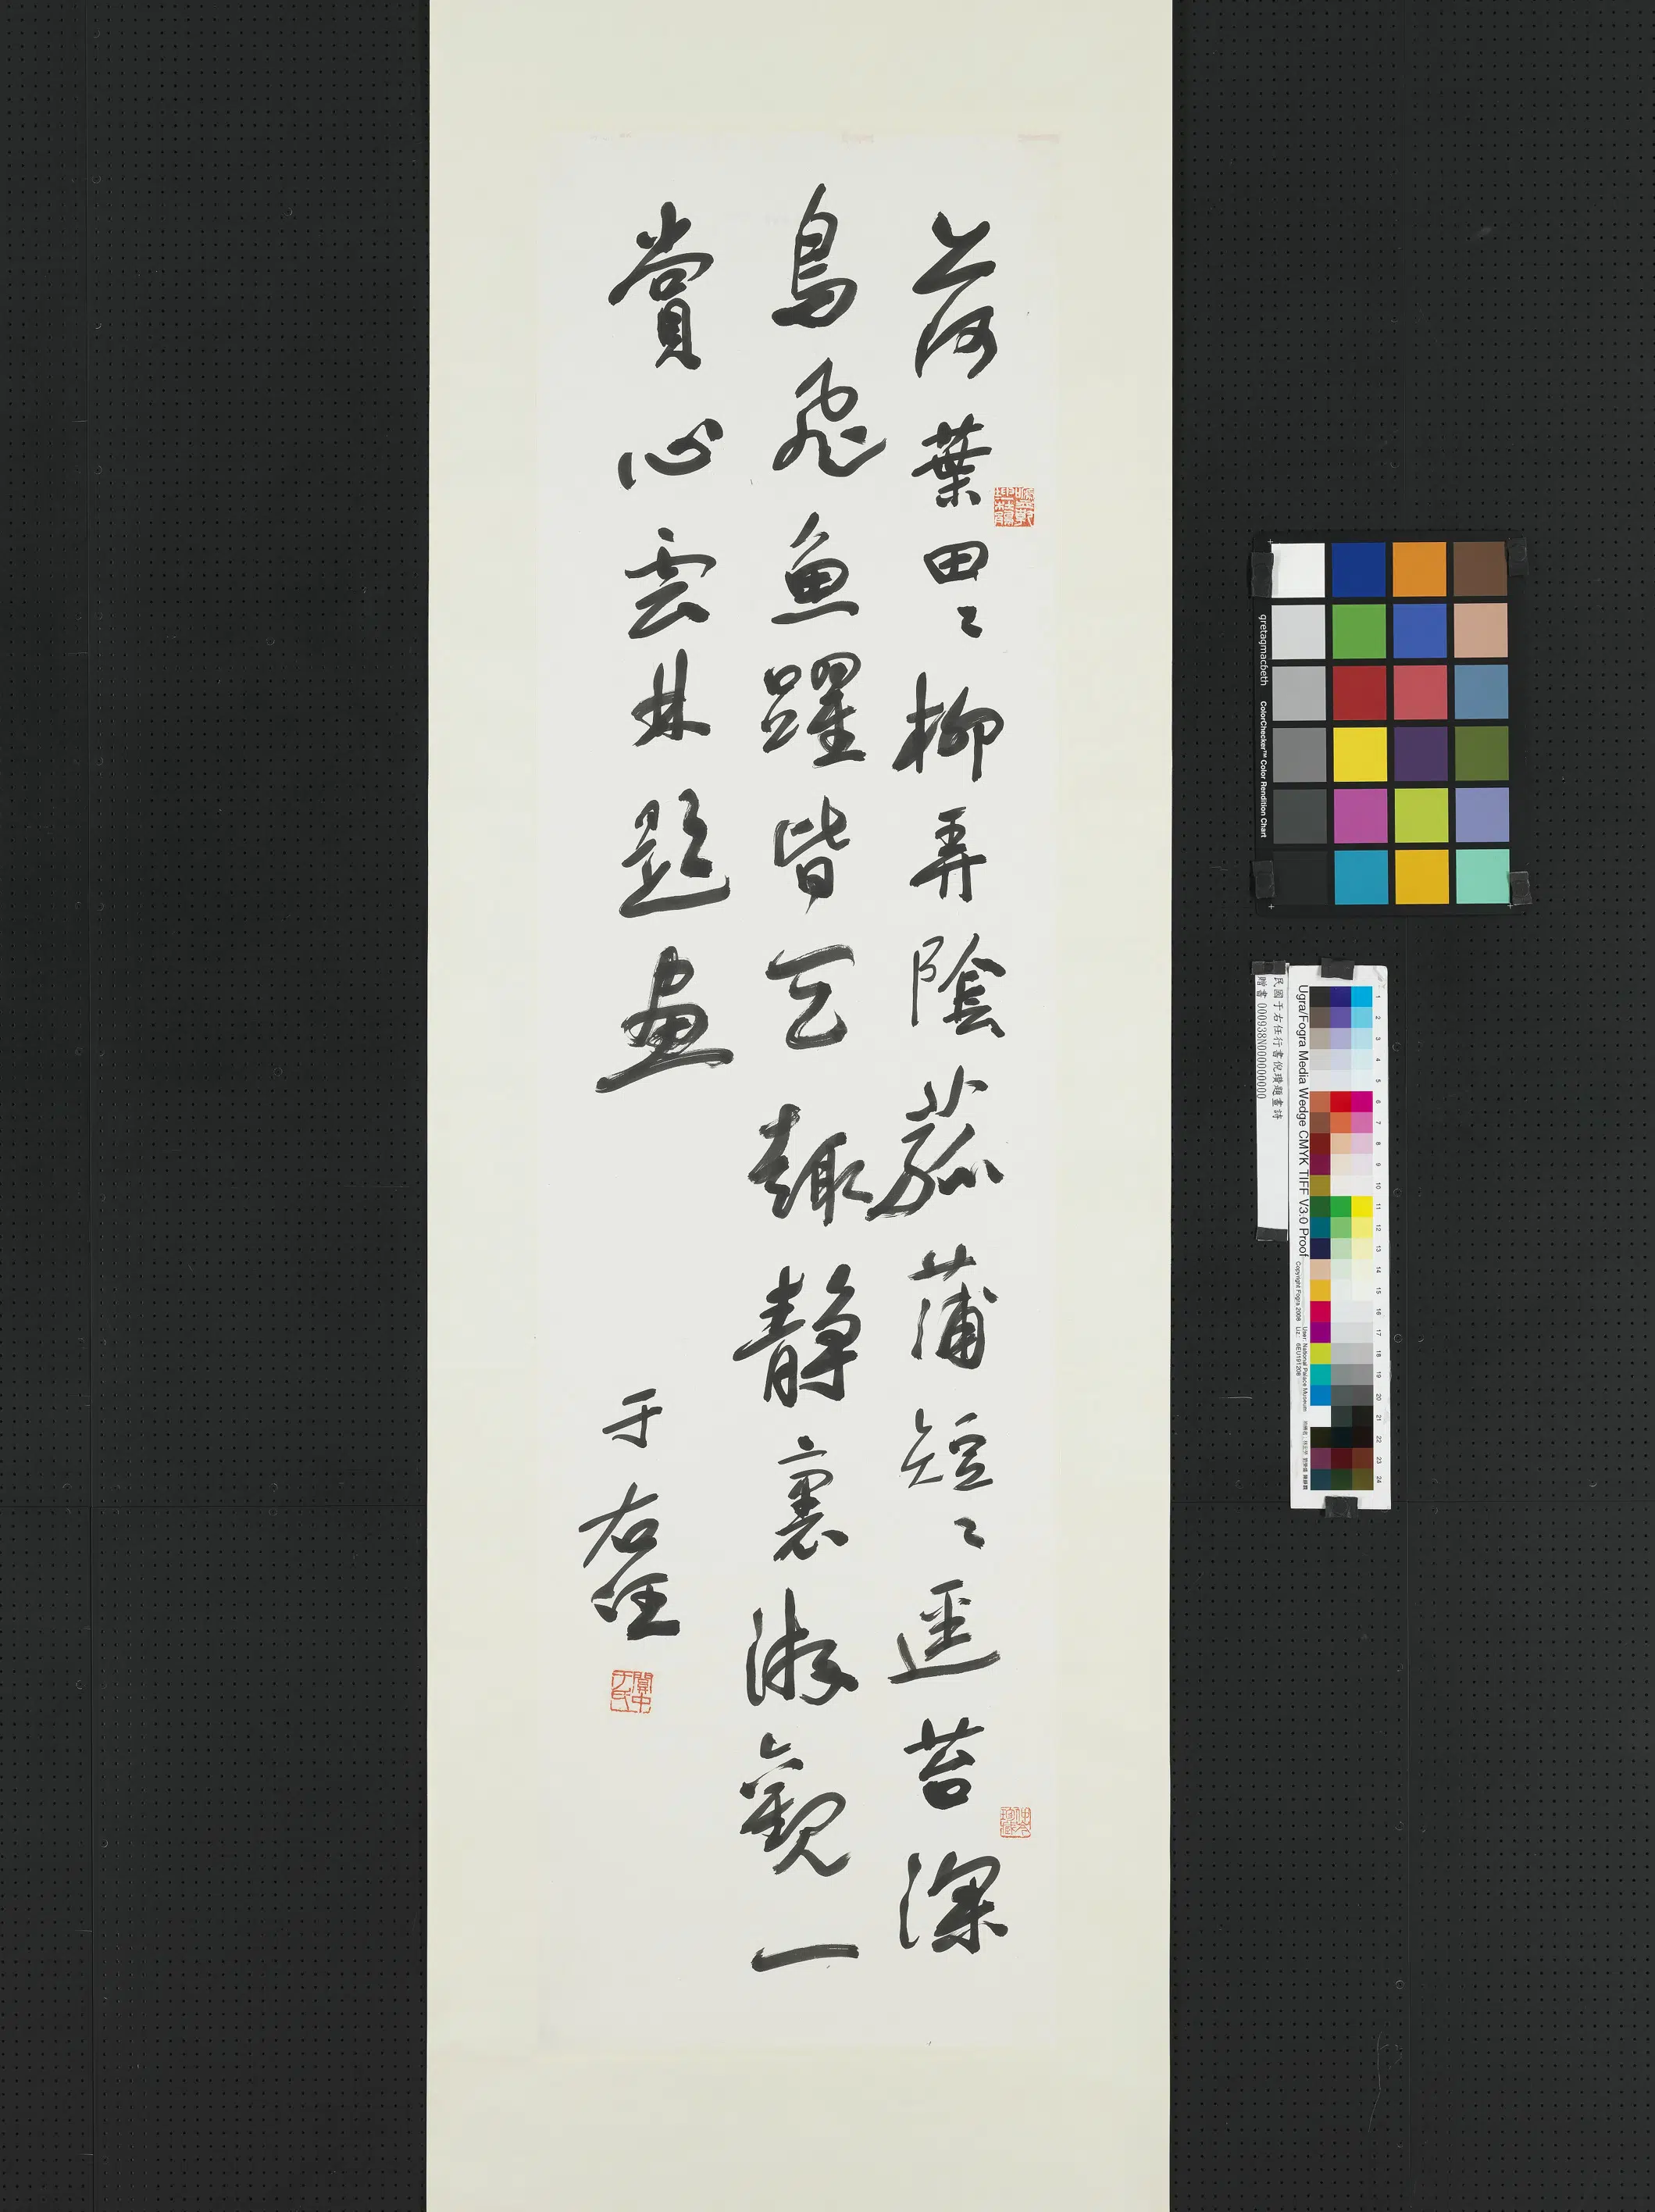 荷葉田〻柳弄陰菰蒲短〻逕苔深
鳥飛魚躍皆天趣靜裏游觀一
賞心雲林題畫
于右任
關中于氏
民國于右任行書倪瓚題畫詩
贈書 000938N000000000
gretagmacbeth
ColorChecker™ Color Rendition Chart
Ugra/Fogra Media Wedge CMYK TIFF V3.0 Proof
Copyright Fogra 2008
User: National Palace Museum
1
2
3
4
5
6
7
8
9
10
11
12
13
14
15
16
17
18
19
20
21
22
23
24